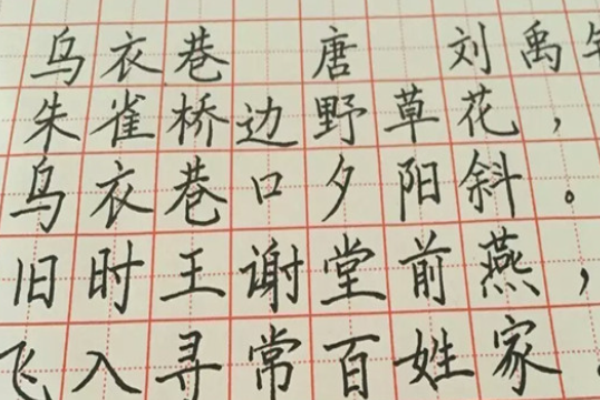 乌衣巷 唐 刘禹锡
朱雀桥边野草花，
乌衣巷口夕阳斜。
旧时王谢堂前燕，
飞入寻常百姓家。